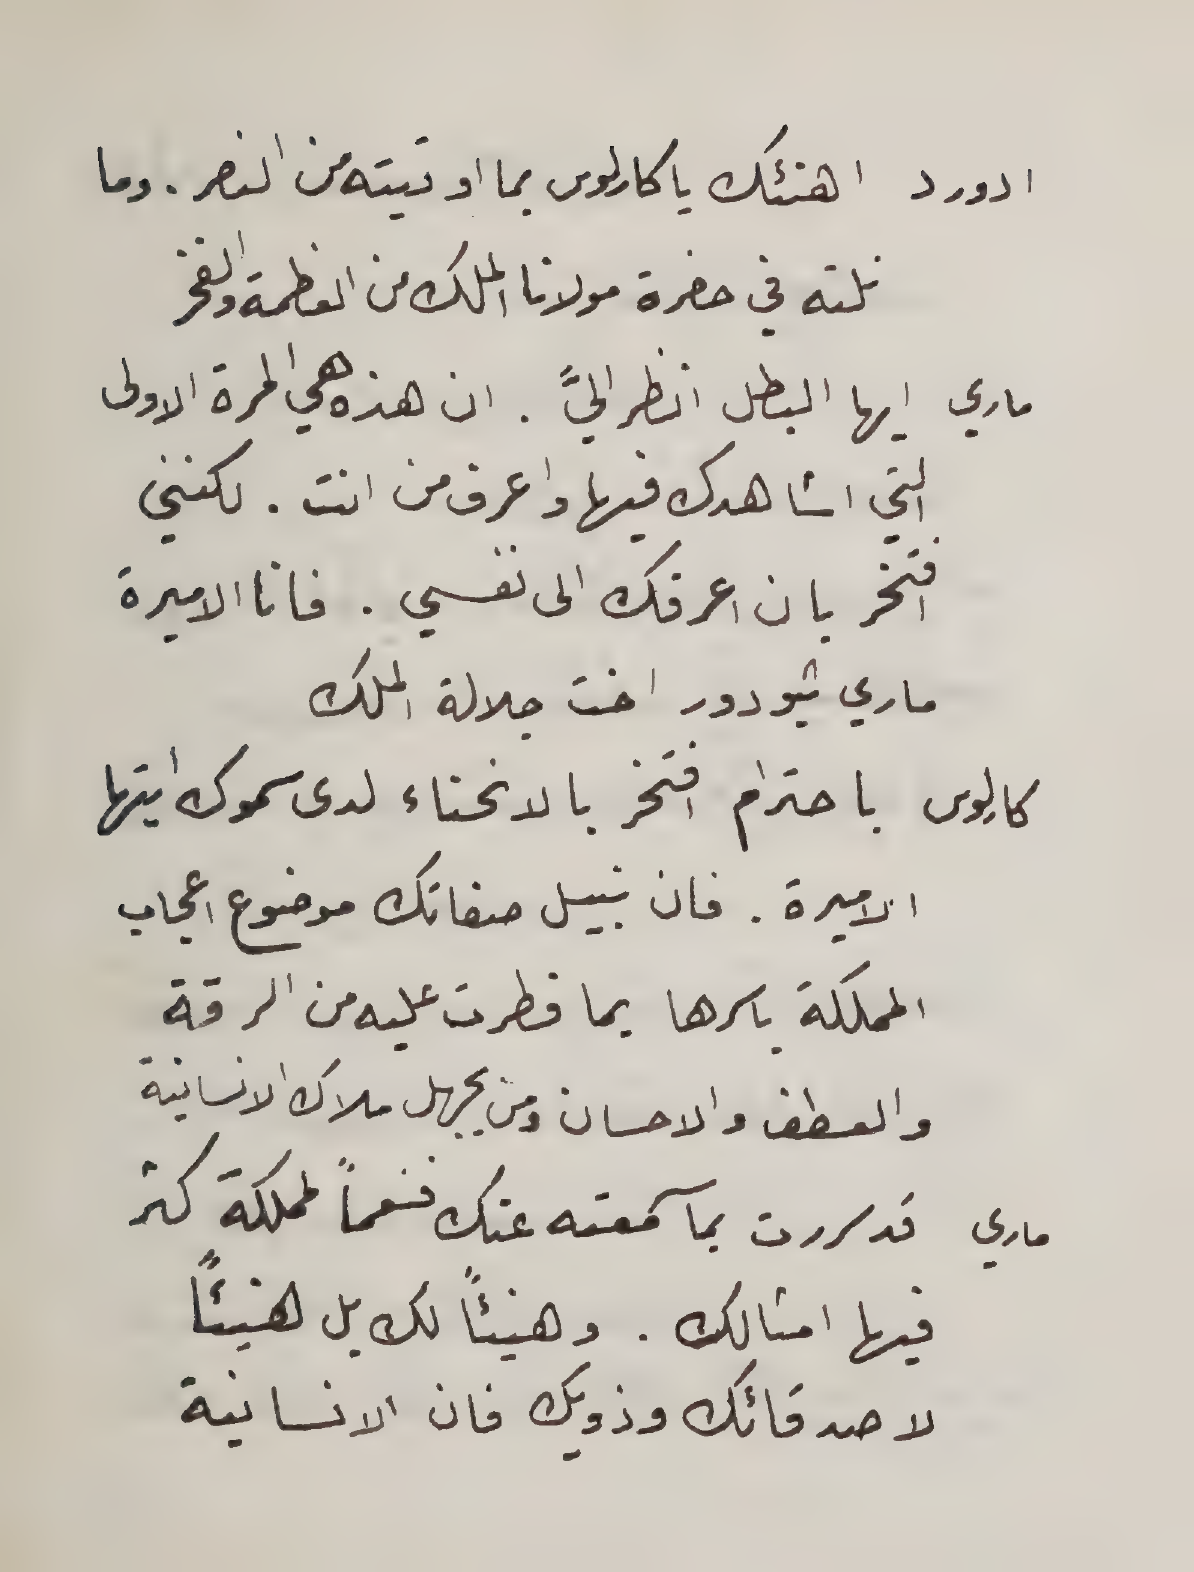 ادورد اهنئك يا كارلوس بما اوتيته من النصر . وما
نلته في حضرة مولانا الملك من العظمة والفخر
ماري ايها البطل انظر اليَّ . ان هذه هي المرة الاولى
التي اشاهدك فيها واعرف من انت . لكنني
افتخر بان اعرفك الى نفسي . فانا الاميرة
ماري ثيودور اخت جلالة الملك
كارلوس باحترام افتخر بالانحناء لدى سموك ايتها
الاميرة . فان نبيل صفاتك موضوع اعجاب
المملكة باسرها بما فطرت عليه من الرقة
والعطف والاحسان ومن يجهل ملاك الانسانية
ماري قد سررت بما سمعته عنك فنعماً لمملكة كثر
فيها امثالك . وهنيئاً لك بل هنيئاً
لاصدقائك وذويك فان الانسانية